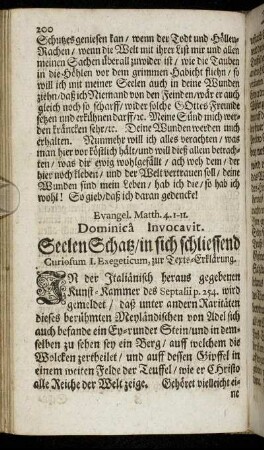 200
Schutzes geniesen kan / wenn der Todt und Höllen-
Rachen / wenn die Welt mit ihrer List mir und allen
meinen Sachen überall zuwider ist / wie die Tauben
in die Höhlen vor dem grimmen Habicht fliehn / so
will ich mit meiner Seelen auch in deine Wunden
ziehn / daß ich Niemand von den Feinden / wär er auch
gleich noch so scharff / wider solche GOttes Freunde
setzen und erkühnen darff ꝛc. Meine Sünd mich wer-
den kräncken sehr ꝛc. Deine Wunden werden mich
erhalten. Nunmehr will ich alles verachten / was
man hier vor köstlich hält / und will diß allein betrach-
ten / was dir ewig wohlgefällt / ach weh dem / der
hier noch kleben / und der Welt vertrauen soll / deine
Wunden sind mein Leben / hab ich die / so hab ich
wohl! So gieb / daß ich daran gedencke!
Evangel. Matth. 4. 1-11.
Dominicâ Invocavit.
Seelen Schatz / in sich schliessend
Curiosum I. Exegeticum, zur Texts-Erklärung.
IN der Italiänisch heraus gegebenen
Kunst-Kammer des Septalii p. 254. wird
gemeldet / daß unter andern Raritäten
dieses berühmten Meyländischen von Adel sich
auch befande ein Ey-runder Stein / und in dem-
selben zu sehen sey ein Berg / auf welchem die
Wolcken zertheilet / und auff dessen Gipffel in
einem weiten Felde der Teuffel / wie er Christo
alle Reiche der Welt zeige. Gehöret vielleicht ei-
ne